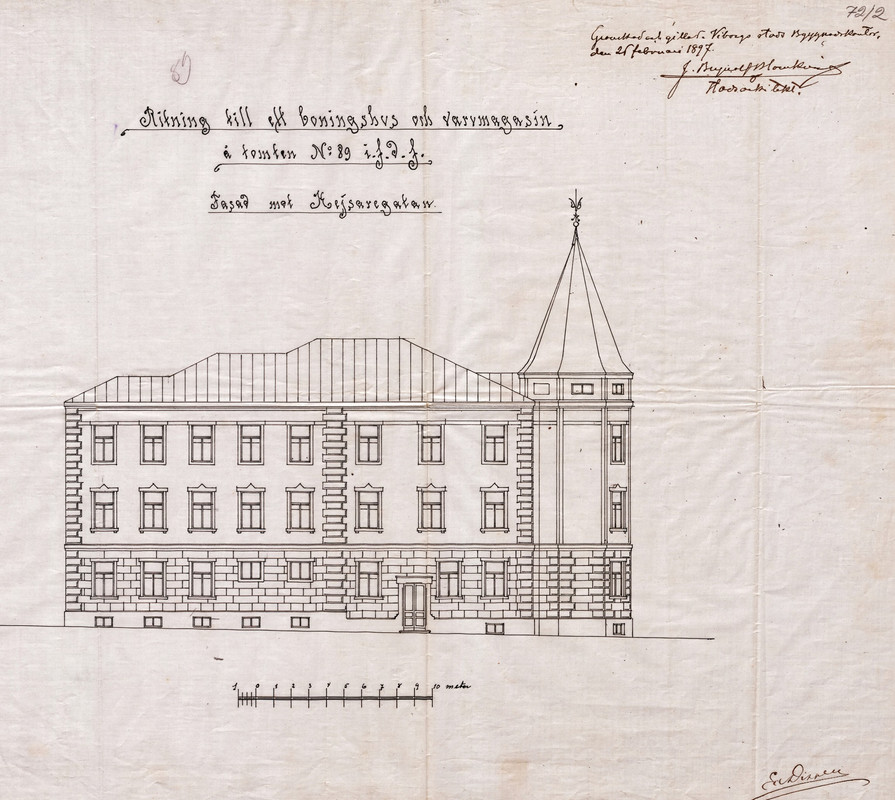 72/2
Granskad och gillad. Viborgs stads Byggnadskontor,
den 25 februari 1897.
J. Brynolf Blomkvist
Stadsarkitekt.
89
Ritning till ett boningshus och varvmagasin
å tomten No: 89 i. f. d. f.
Fasad mot Kejsaregatan.
1 0 1 2 3 4 5 6 7 8 9 10 meter